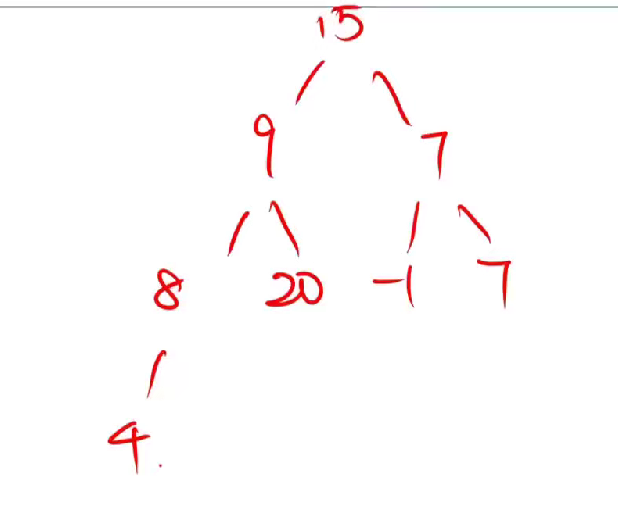 15
9 7
8 20 -1 7
4.